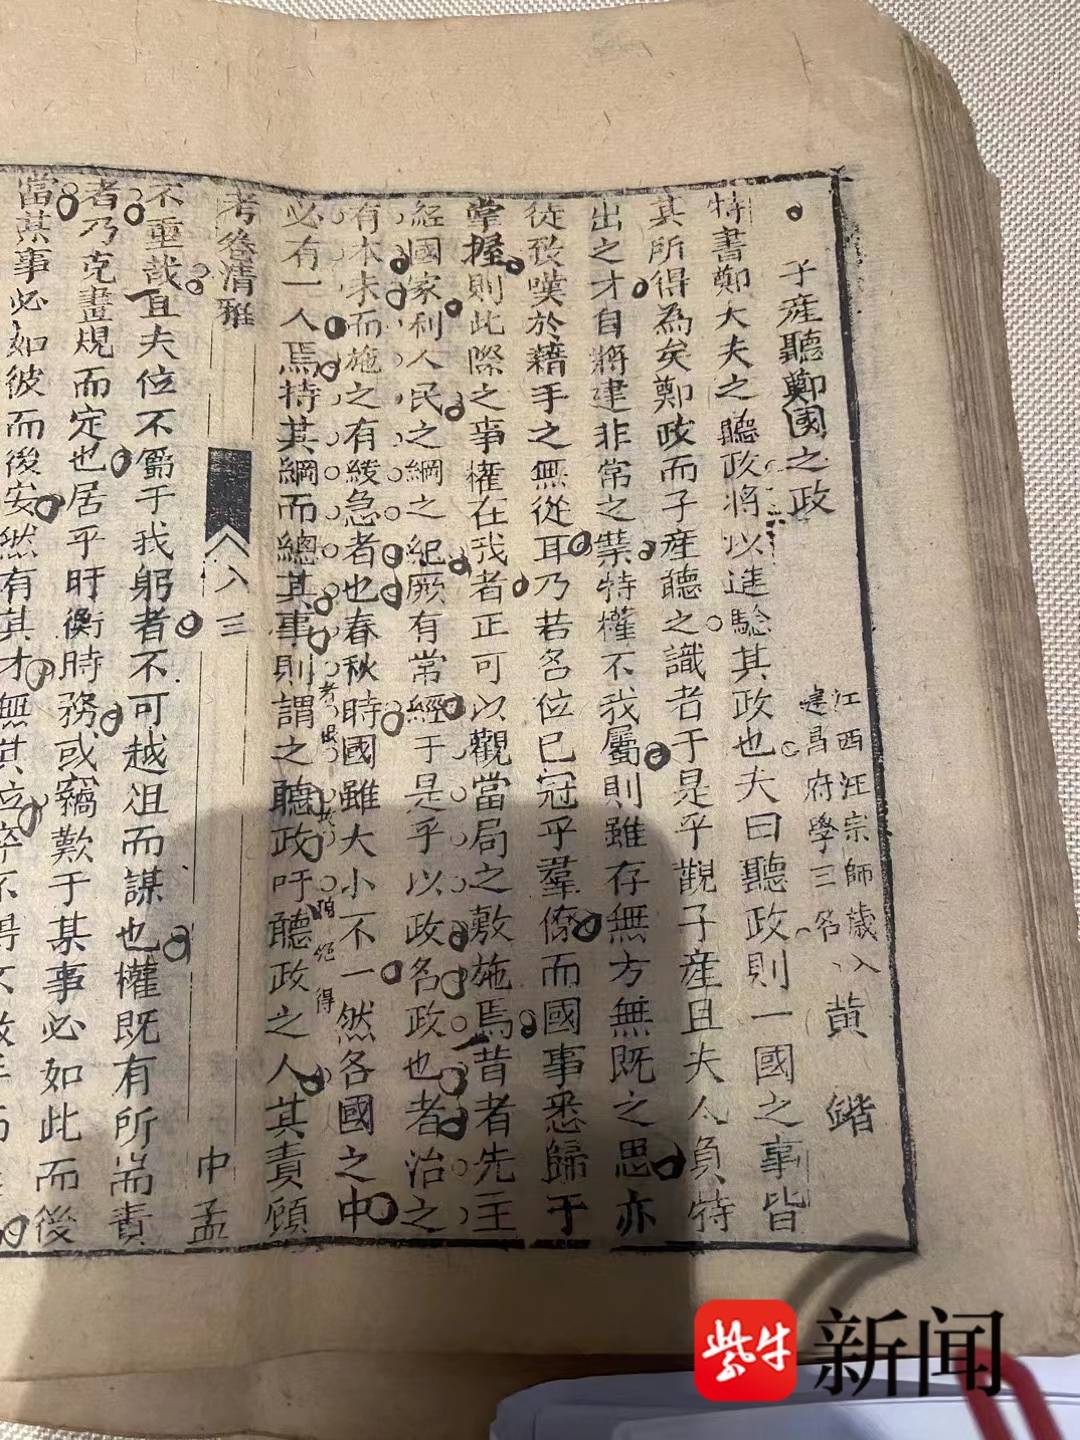 子產聽鄭國之政
江西汪宗師歲入
建昌府學三名
黄鍇
特書鄭大夫之聽政將以進騐其政也夫曰聽政則一國之事皆
其所得為矣鄭政而子産聽之識者于是乎觀子産且夫人負特
出之才自將建非常之業特權不我屬則雖存無方無既之思亦
徒致嘆於藉手之無從耳乃若名位已冠乎羣僚而國事悉歸于
掌握則此際之事權在我者正可以觀當局之敷施焉昔者先王
經國家利人民之綱之紀厥有常經于是乎以政名政也者治之
有本末而施之有緩急者也春秋時國雖大小不一然各國之中
必有一人焉持其綱而總其事則謂之聽政吁聽政之人其責顧
考卷清雅
八三
中孟
不重哉且夫位不屬于我躬者不可越俎而謀也權既有所耑責
者乃克畫規而定也居乎盱衡時務或竊歎于某事必如此而後
當某事必如彼而後安然有其才無其位卒不得